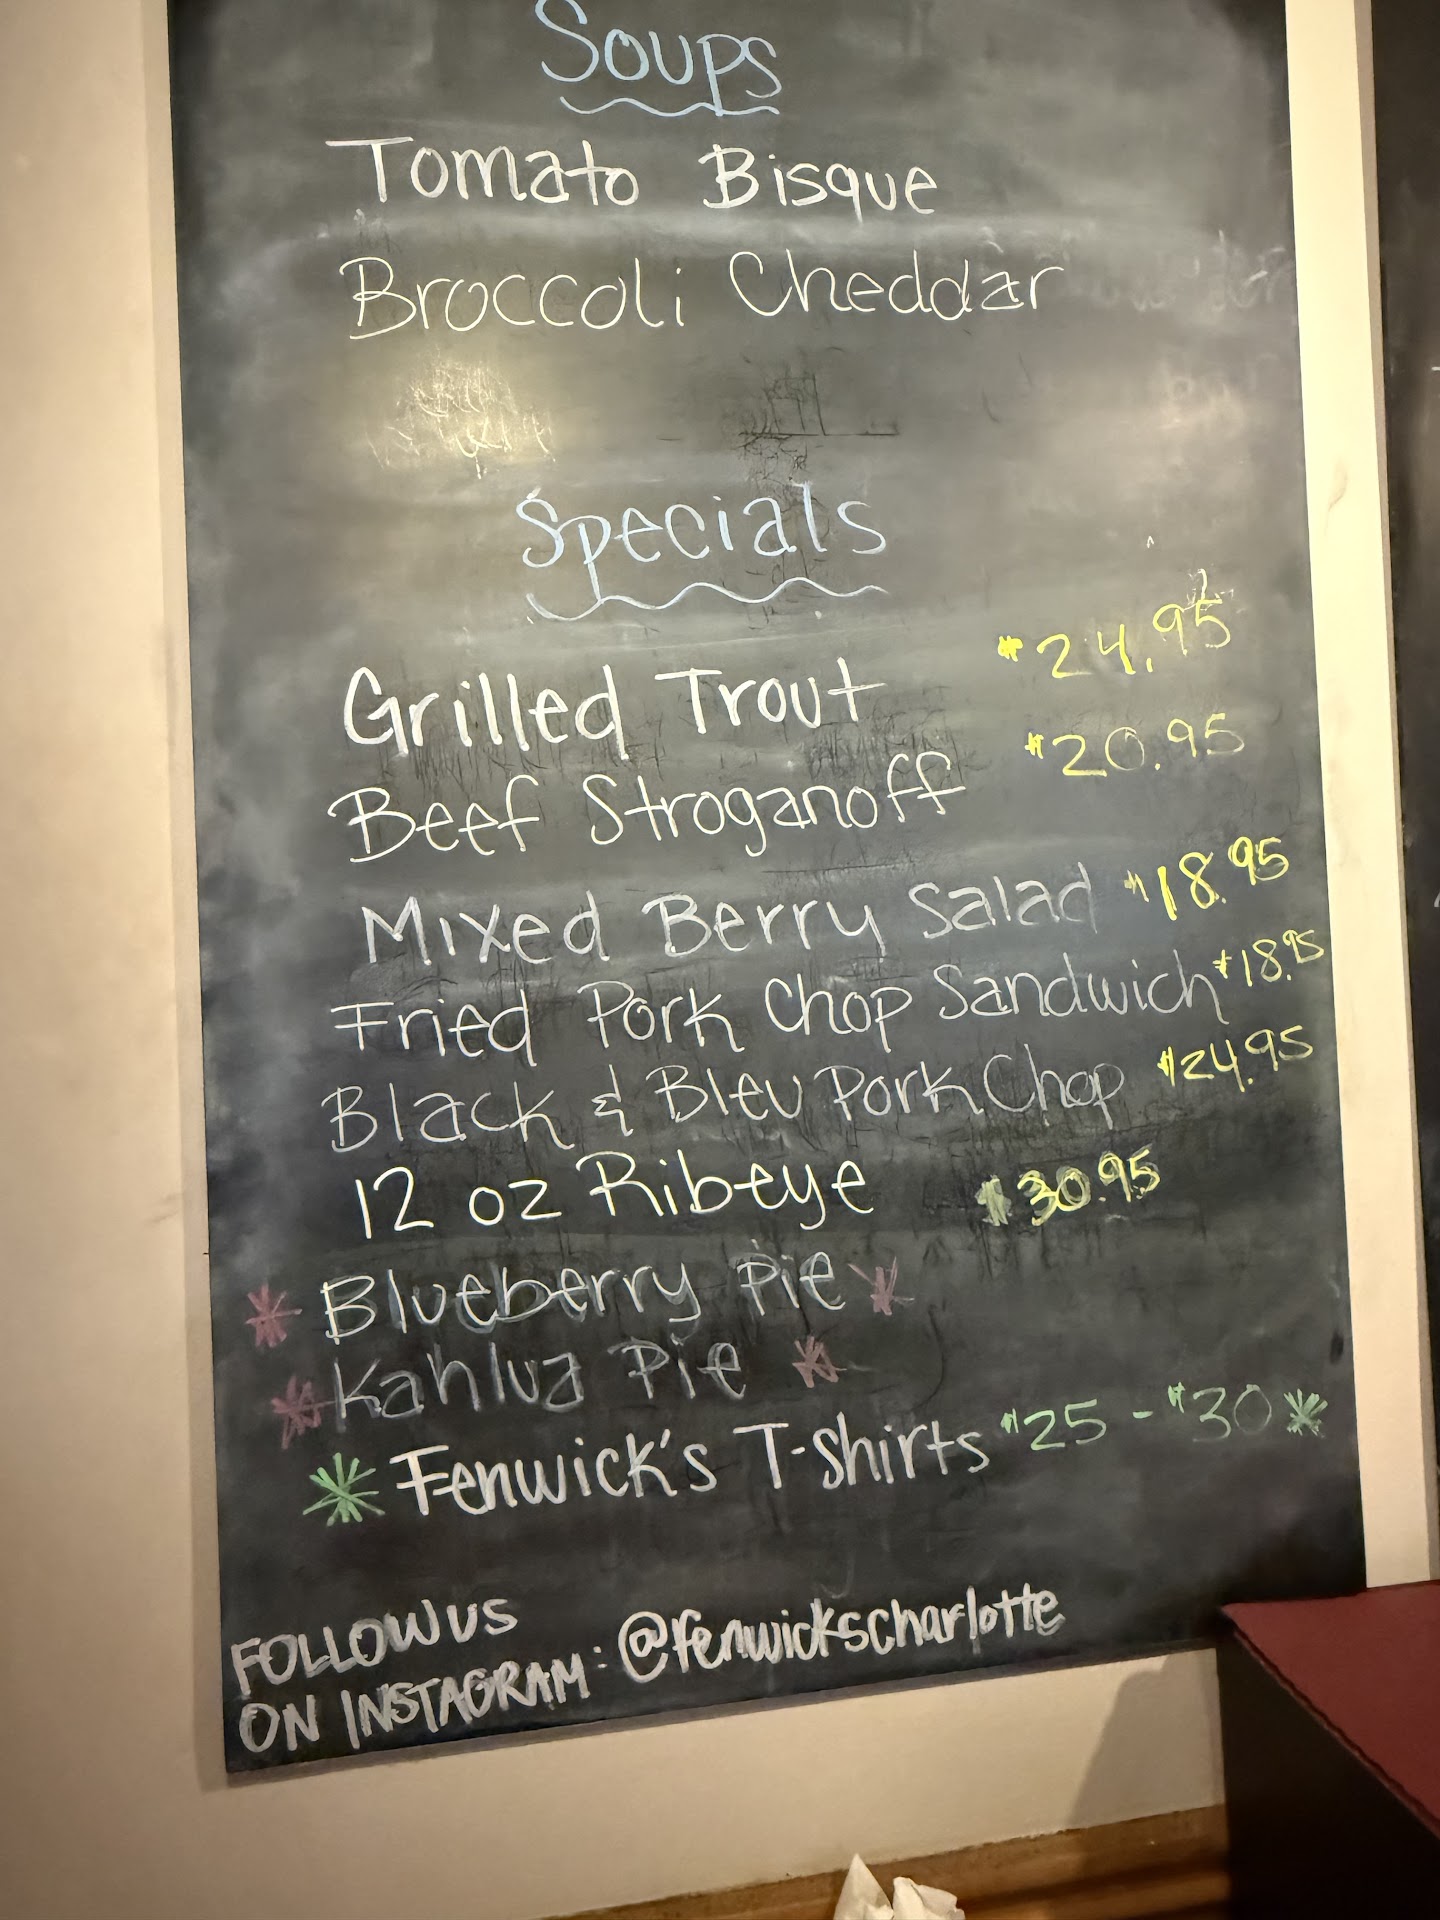 Soups
Tomato Bisque
Broccoli Cheddar
Specials
Grilled Trout $24.95
Beef Stroganoff $20.95
Mixed Berry Salad $18.95
Fried Pork Chop Sandwich $18.95
Black & Bleu Pork Chop $24.95
12 oz Ribeye $30.95
* Blueberry Pie *
* Kahlua Pie *
* Fenwick's T-Shirts $25 - $30 *
FOLLOW US
ON INSTAGRAM: @fenwickscharlotte